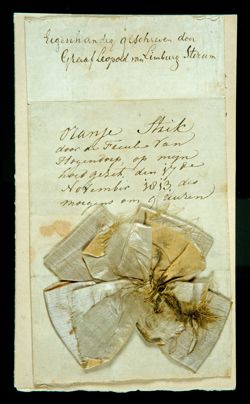 Eigenhandig geschreven den
Graaf Leopold van Limburg Stirum
Oranje Strik
door de Familie Van
Hogendorp, op mijn
hoed gezet, den 17de
November 1813, des
morgens om 9 uuren